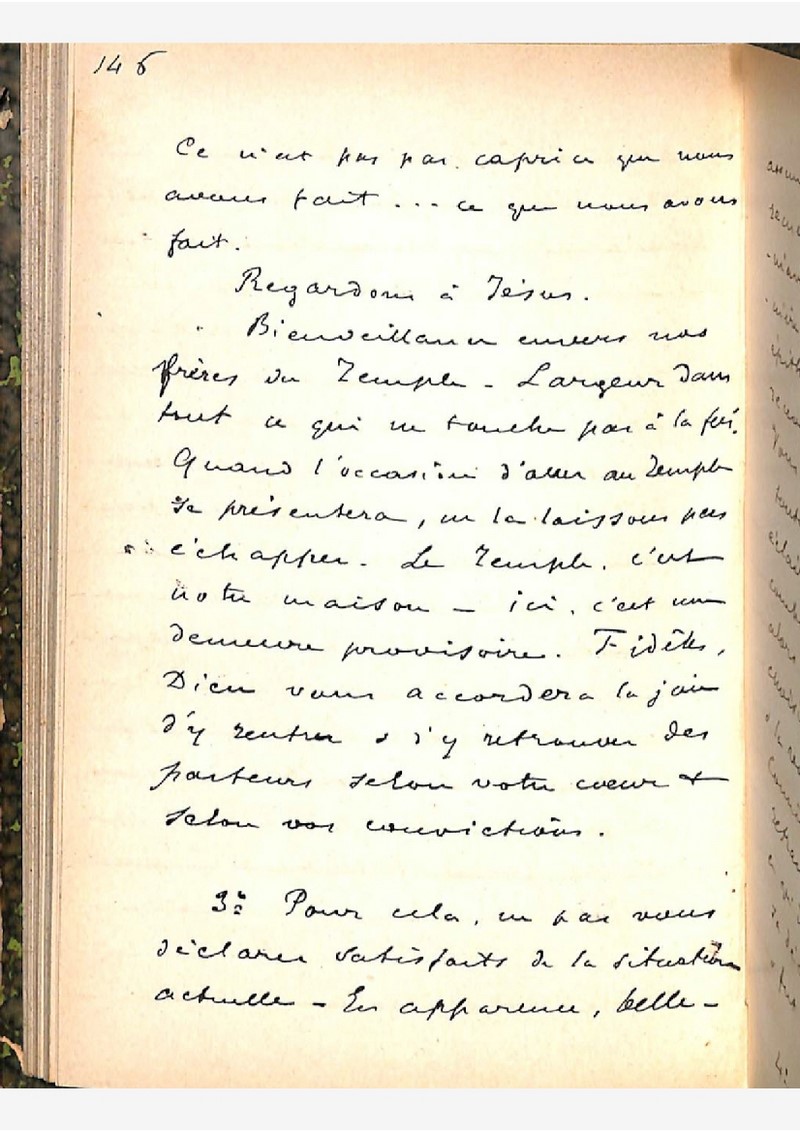 146
Ce n'est pas par caprice que nous
avons fait ... ce que nous avons
fait.
Regardons à Jésus.
Bienveillance envers nos
frères du Temple - Largeur dans
tout ce qui ne touche pas à la foi.
Quand l'occasion d'aller au Temple
se présentera, ne la laissons pas
échapper. Le Temple, c'est
notre maison - ici, c'est une
demeure provisoire. Fidèles,
Dieu vous accordera la joie
d'y rentrer & d'y retrouver des
pasteurs selon votre cœur &
selon vos convictions.
3º Pour cela, ne pas vous
déclarer satisfaits de la situation
actuelle - En apparence, belle -